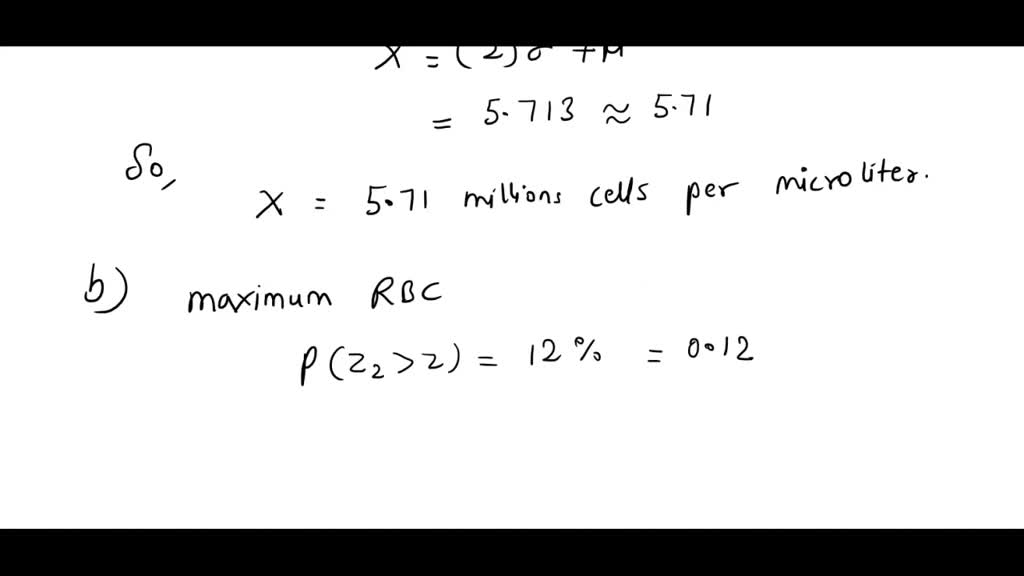 X = (z)σ + μ
= 5.713 ≈ 5.71
So,
X = 5.71 millions cells per microliter.
b) maximum RBC
P(z₂ > z) = 12% = 0.12